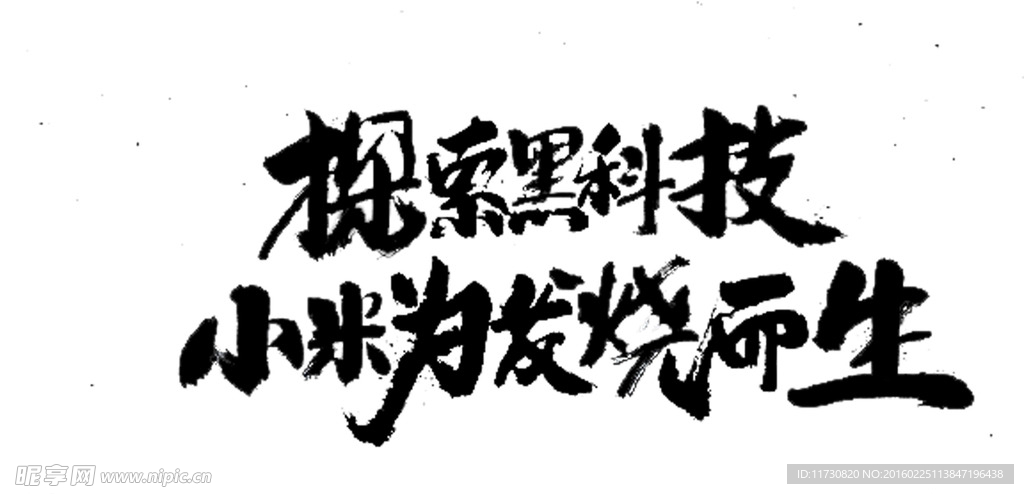 探索黑科技
小米为发烧而生
昵享网 www.nipic.cn
ID:11730820 NO:20160225113847196438